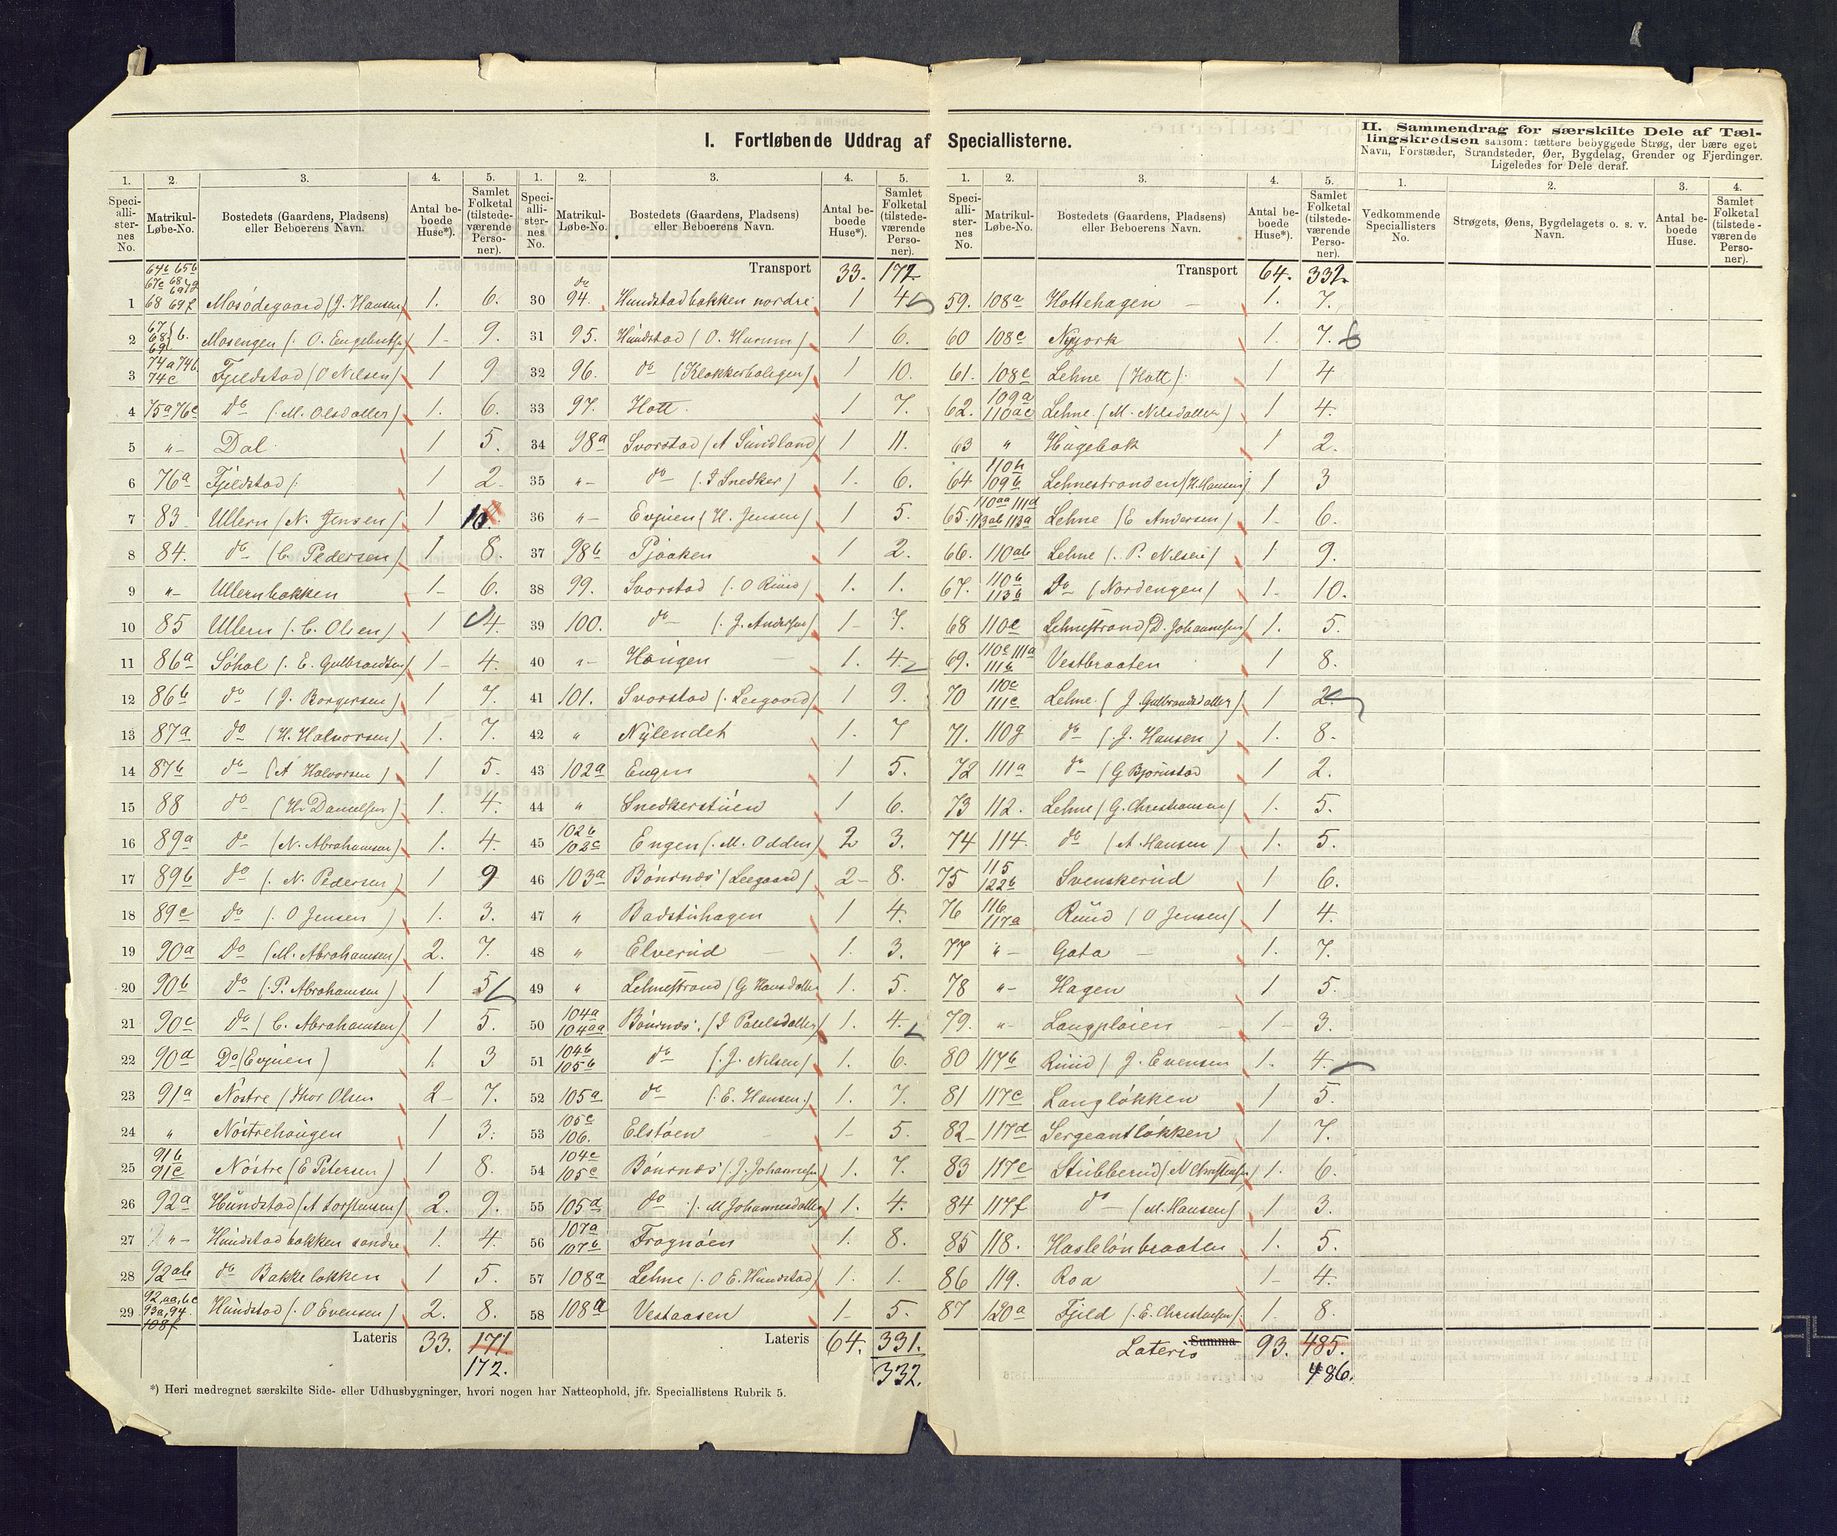 I. Fortløbende Uddrag af Speciallisterne.
II. Sammendrag for særskilte Dele af Tællingskredsen saasom: tættere bebyggede Strøg, der bære eget
Navn, Forstæder, Strandsteder, Øer, Bygdelag, Grender og Fjerdinger.
Ligeledes for Dele deraf.
1. 2. 3. 4. 5.
Speciallisternes No. Matrikul-Løbe-No. Bostedets (Gaardens, Pladsens) eller Beboerens Navn. Antal beboede Huse*). Samlet Folketal (tilstedeværende Personer).
1 64b 65b 67c 68 69f Mosødegaard (J. Hansen) 1. 6.
2 67 68 69 b. Mosengen (O. Engebretsen) 1 9.
3 74a 74b 74c Fjeldstad (O Nilsen) 1 9
4 75a 76c do (M. Olsdatter) 1. 6.
5 " Dal 1 5.
6 76a Fjeldstad 1 2
7 83 Ullern (N. Jensen) 1 10
8 84. do (C. Pedersen) 1 8.
9 " Ullernbakken 1 6.
10 85 Ullern (C. Olsen) 1 4.
11 86a Søhol (E. Gulbrandsen) 1 4.
12 86b do (J. Borgersen) 1 7.
13 87a do (H. Halvorsen) 1. 7.
14 87b do (A Halvorsen) 1 5.
15 88 do (H. Danielsen) 1. 4.
16 89a do (N. Abrahamsen) 1. 4.
17 89b do (N. Pedersen) 1 9
18 89c do (O Jensen) 1. 3.
19 90a Do (M. Abrahamsen) 2. 7.
20 90b do (P. Abrahamsen) 1 5
21 90c do (C. Abrahamsen) 1 5.
22 90d Do (Evjuen) 1. 3
23 91a Nöstre (Thor Olsen 2 7.
24 " Nöstrehaugen 1 3.
25 91b 91c Nöstre (E Petersen) 1 8.
26 92a Hundstad (A Torstensen) 2. 9.
27 " Hundstadbakken søndre 1. 4.
28 92ab do Bakkeløkken 1 5.
29 92,aa,bc 93a,94. 108f Hundstad (O Evensen) 2. 8.
Lateris 33. 171
172.
*) Heri medregnet særskilte Side- eller Udhusbygninger, hvori nogen har Natteophold, jfr. Speciallistens Rubrik 5.
1. 2. 3. 4. 5.
Speciallisternes No. Matrikul-Løbe-No. Bostedets (Gaardens, Pladsens) eller Beboerens Navn. Antal beboede Huse*). Samlet Folketal (tilstedeværende Personer).
Transport 33. 172
30 do 94. Hundstadbakken nordre 1 4
31 95. Hundstad (O. Hurum) 1 6.
32 96. do (Klokkerboligen) 10.
33 97. Hott. 1 7.
34 98a Svorstad (A Sundland) 1 11.
35 " do (J Snedker) 1. 6.
36 " Evjuen (H. Jensen) 1 5.
37 98b Pjaaken 1 2.
38 99. Svorstad (O Ruud) 1. 1.
39 100. do (J. Andersen) 1 7.
40 " Haugen 1. 4
41 101. Svorstad (Leegaard) 1 9.
42 " Nylendet 1. 7
43 102a Engen 1 5.
44 " Snedkerstuen 1 6.
45 102b 102c Engen (M. Odden) 2 3.
46 103a Bönsnæs (Leegaard) 2 8.
47 " Badstuhagen 1 4.
48 " Elverud 1. 3.
49 " Lehnestrand (G Hansdatter 1. 5.
50 104a 104aa Bönsnæs (J Paulsdatter) 1. 4.
51 104b 105b do (J. Nilsen) 1. 6.
52 105a do (E. Hansen) 1. 7.
53 105c 106. Elstøen 1 5.
54 104c 105c Bönsnæs (J. Johannesen) 1. 7.
55 105d do (M Johannesdatter) 1. 4.
56 107a 107b Frognøen 1. 8.
57 108a Lehne (O E. Hundstad) 1. 1.
58 108a Vestaasen 1 5.
Lateris 64. 331.
332.
1. 2. 3. 4. 5.
Speciallisternes No. Matrikul-Løbe-No. Bostedets (Gaardens, Pladsens) eller Beboerens Navn. Antal beboede Huse*). Samlet Folketal (tilstedeværende Personer).
Transport 64. 332.
59. 108a Hottehagen 1. 7.
60 108c Nyjork 1. 7. 6
61. 108c Lehne (Hott) 1 4
62. 109a 110ac Lehne (M. Nilsdatter) 1 4.
63 " Hugebak 1 2.
64 110b 109b Lehnestranden (H. Hansen) 1 3
65. 110aa 111d 113ab 113a Lehne (E Andersen) 1 6.
66. 110ab Lehne (P. Nilsen) 1 9.
67. 110b 113b Do (Nordengen) 1 10.
68 110c Lehnestrand (D. Johannesen) 1. 5.
69. 110c 111a 111b Vestbraaten 1 8.
70 110c 111c Lehne (J Gulbrandsdatter) 1 2
71. 110g do (J. Hansen) 1. 8.
72 111a do (G Bjørnstad 1 2.
73 112. Lehne (G. Christiansen) 1. 5.
74 114. do (A. Hansen) 1. 5.
75 115 122b Svenskerud 1 6.
76 116 117a Ruud (O Jensen) 1 4.
77 " Gata 1. 7.
78 " Hagen 1 5.
79. " Langpløien 1 3.
80 117b Ruud (J. Evensen 1. 4.
81 117c Langløkken 1 5.
82 117d Sergeantløkken 1 7.
83 117e Stubberud (N Christensen) 1. 6.
84 117f do (M. Hansen) 1 3.
85 118. Haslelønbraaten 1. 5.
86 119. Roa 1 4.
87 120a Fjeld (E. Christensen) 1. 8.
Lateris Summa 93. 485.
486.
1. 2. 3. 4.
Vedkommende Speciallisters No. Strøgets, Øens, Bygdelagets o. s. v. Navn. Antal beboede Huse. Samlet Folketal (tilstedeværende Personer).